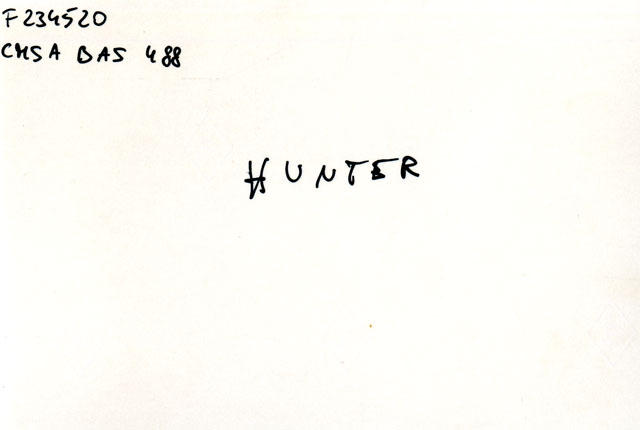 F234520
CMSA BAS 488
HUNTER